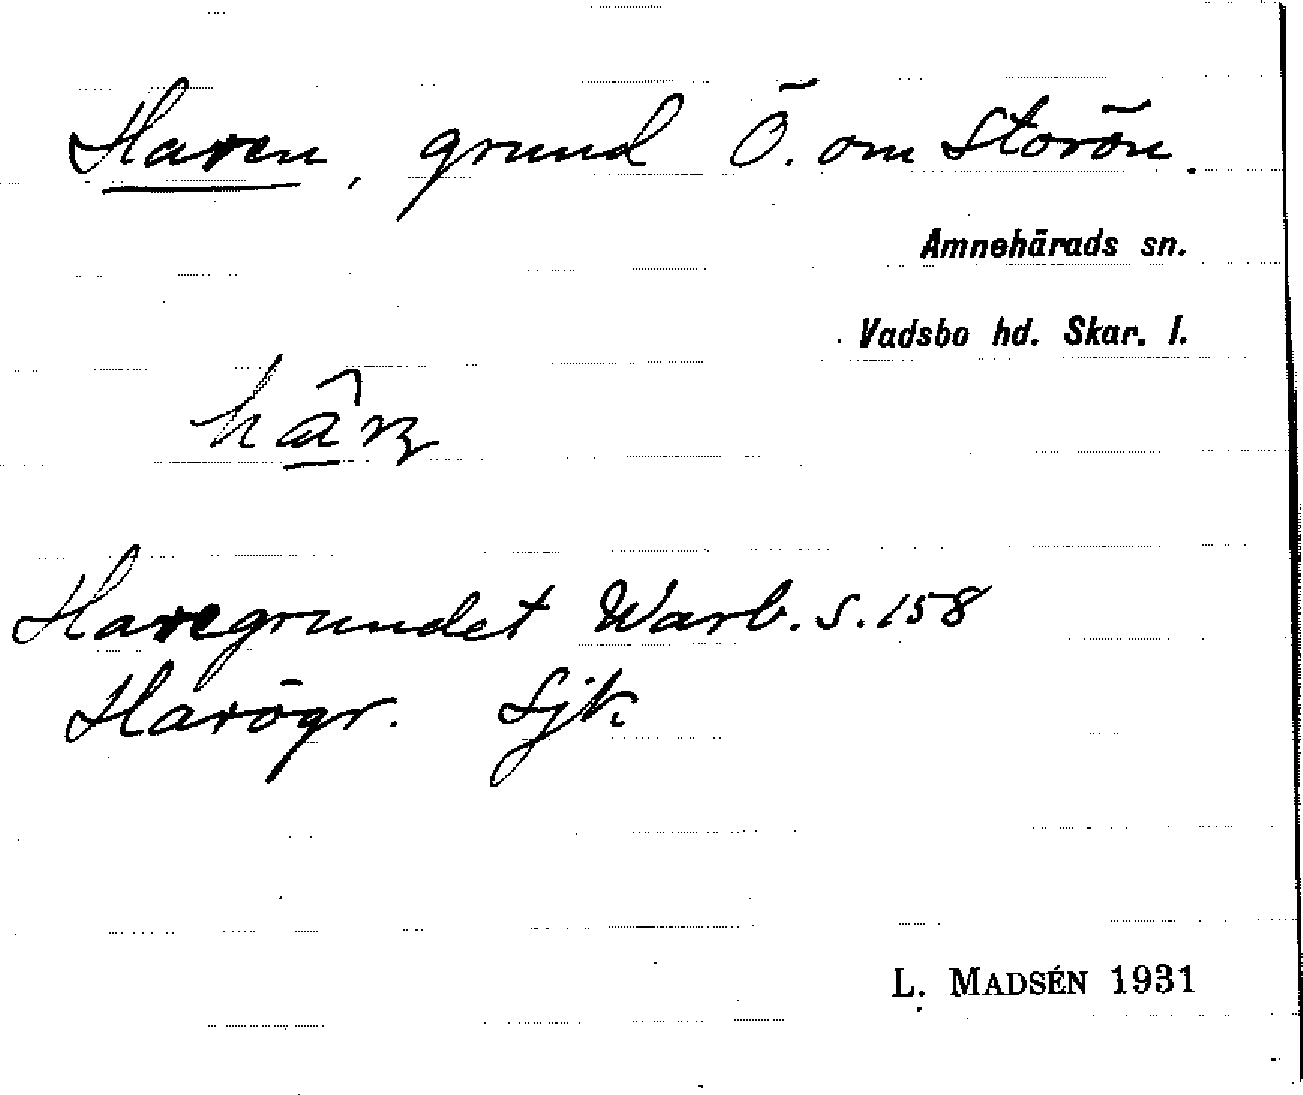 Haren, grund Ö. om Storön.
Amnehärads sn.
Vadsbo hd. Skar. l.
Haregrundet Warb. s. 158
Harögr. Sjk.
L. MADSÉN 1931